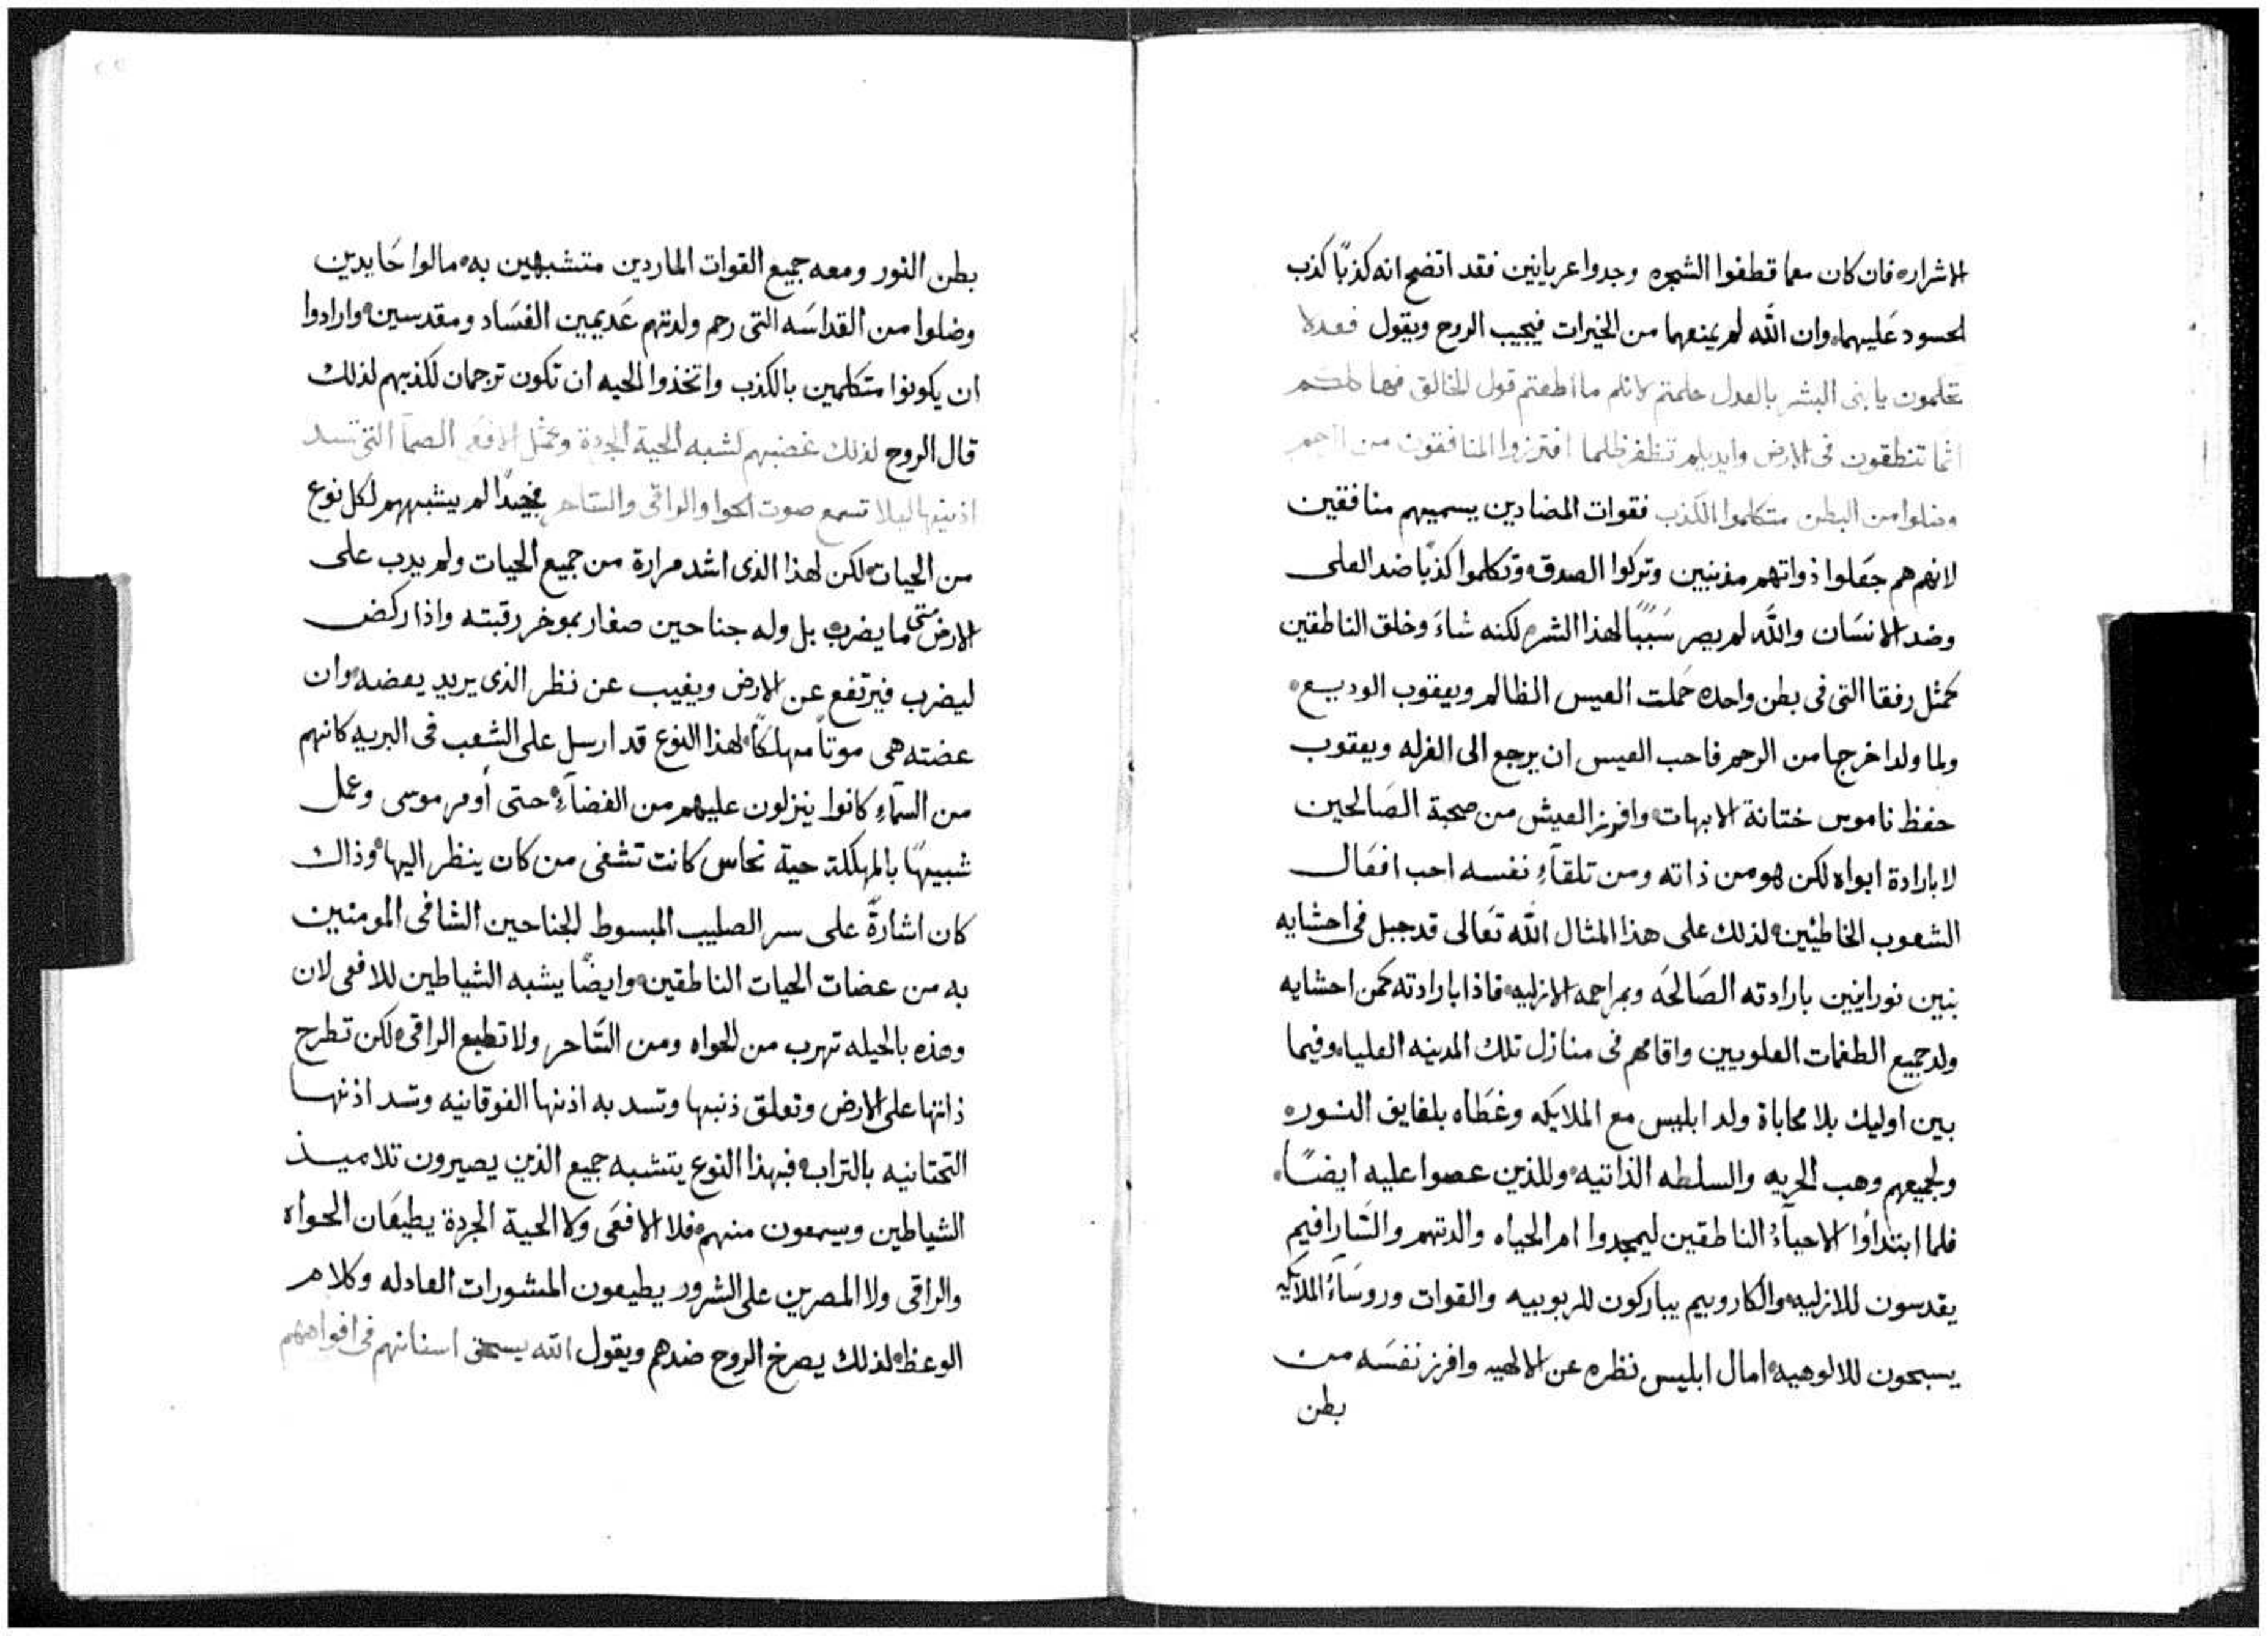 الاشراره فان كان معما قطفوا الشجره وجدوا عريانين فقد اتضح انه كذبًا كذب
الحسود عَليهما، وان الله لم يمنعهما من الخيرات فيجيب الروح ويقول فعدلا
تتكلمون يا بنى البشر بالعدل حكمتم لانكم ما اطعتم قول الخالق فيما
اثما تنطقون فى الارض وايديكم تظفر ظلما افترزوا المنافقون من الرحم
وضلوا من البطن متكلموا الكذب فقوات المضادين يسميهم منافقين
لانهم هم جعَلوا ذواتهم مذنبين وتركوا الصدق وتكلموا كذبًا ضد العلى
وضد الانسَان والله لم يصر سَببًا لهذا الشره لكنه شاءَ وخلق الناطقين
كمثل رفقا التى فى بطن واحده حَملت العيس الظالم ويعقوب الوديع
ولما ولدا خرجا من الرحم فاحب العيس ان يرجع الى الغرله ويعقوب
حفظ ناموس ختانة الابهات وافرز العيش من صحبة الصَالحين
لا بارادة ابواه لكن هو من ذاته ومن تلقآءِ نفسه احب افعَال
الشعوب الخاطيين لذلك على هذا المثال الله تعَالى قد جبل فى احشايه
بنين نورانيين بارادته الصَالحَه وبمراحمه الازليه فاذا بارادته كمن احشايه
ولد جميع الطغمات العلويين واقامهم فى منازل تلك المدينه العلياه وفيما
بين اوليك بلا محاباة ولد ابليس مع الملايكه وغطَاه بلفايق النوره
ولجميعهم وهب الحريه والسلطه الذاتيه وللذين عصوا عليه ايضًا
فلما ابتداوا الاحبآءُ الناطقين ليمجدوا ام الحياه والدتهم والسَارافيم
يقدسون للازليه والكاروبيم يباركون للربوبيه والقوات وروسَآءُ الملايكه
يسبحون للالوهيه امال ابليس نظره عن الالهيه وافرز نفسَه من
بطن
بطن النور ومعه جميع القوات الماردين متشبهين به مالوا حَايدين
وضلوا من القداسَه التى رحم ولدتهم عَديمين الفسَاد ومقدسين وارادوا
ان يكونوا متكلمين بالكذب واتخذوا الحيه ان تكون ترجمان لكذبهم لذلك
قال الروح لذلك غضبهم كشبه الحية الجردة ومثل الافعَى الصمآ التى تسد
اذنيها ليلا تسمع صوت الحوا والراقى والساحر فحيدًا لم يشبههم لكل نوع
من الحيات لكن لهذا الذى اشد مرارة من جميع الحيات ولم يدب على
الارض متى ما يضرب بل وله جناحين صغار بموخر رقبته واذا ركض
ليضرب فيرتفع عن الارض ويغيب عن نظر الذى يريد يعضه وان
عضته هى موتًا مهلكًا لهذا النوع قد ارسل على الشعب فى البريه كانهم
من السمآءِ كانوا ينزلون عليهم من الفضآءِ حتى أومر موسى وعمل
شبيهًا بالمهلكة حية نحاس كانت تشفى من كان ينظر اليها وذاك
كان اشارةً على سر الصليب المبسوط الجناحين الشافى المومنين
به من عضات الحيات الناطقين وايضًا يشبه الشياطين للافعى لان
وهذه بالحيله تهرب من الحواه ومن السَاحر ولا تطيع الراقى لكن تطرح
ذاتها على الارض وتعلق ذنبها وتسد به اذنها الفوقانيه وتسد اذنها
التحتانيه بالتراب فبهذا النوع يتشبه جميع الذين يصيرون تلاميذ
الشياطين ويسمعون منهم فلا الافعَى ولا الحية الجردة يطيعَان الحواه
والراقى ولا المصرين على الشرور يطيعون المشورات العادله وكلام
الوعظ لذلك يصرخ الروح ضدهم ويقول الله يسحق اسنانهم فى افواههم